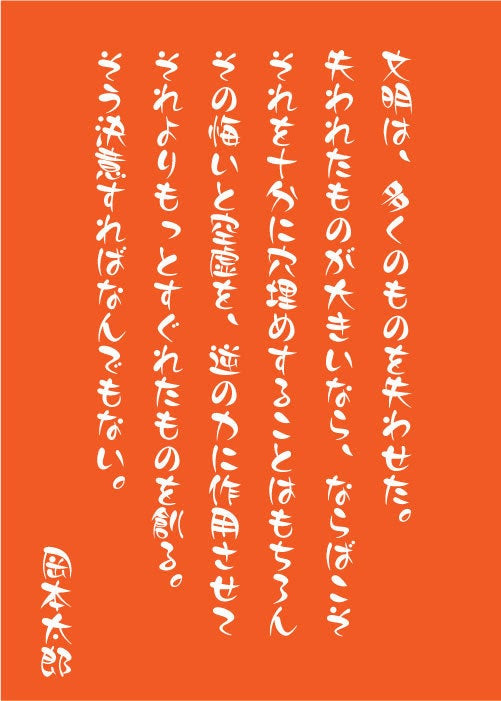 文明は、多くのものを失わせた。
失われたものが大きいなら、ならばこそ
それを十分に穴埋めすることはもちろん
その悔いと空虚を、逆の力に作用させて
それよりもっとすぐれたものを創る。
そう決意すればなんでもない。
岡本太郎